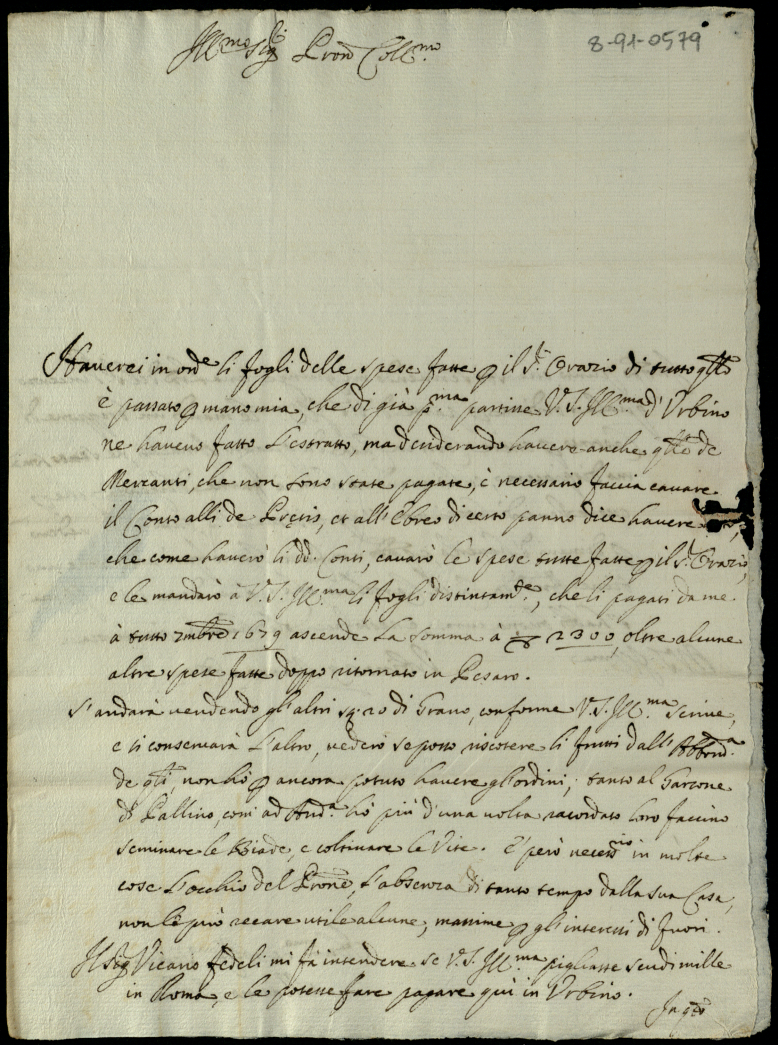 8-91-0579
Ill.mo Sig.r Pron Coll.mo
Haverei in ord.e li fogli delle spese fatte p il S.r Orazio di tutto q.llo
è passato p mano mia, che di già p.ma partisse V.S.Ill.ma d'Urbino
ne havevo fatto l'estratto, ma desiderando havere anche q.llo de
Mercanti, che non sono state pagate, è necessario faccia cavare
il Conto alli de Pretis, et all'Ebreo di certo panno dice havere
che come haverò li d.i Conti, cavarò le spese tutte fatte p il S.r Orazio,
e le mandarò à V.S.Ill.ma li fogli distintam.te, che li pagati da me
à tutto 7mbre 1679 ascende la somma à 2300, oltre alcune
altre spese fatte doppo ritornato in Pesaro.
S'andarà vendendo gl'altri 20 di Grano, conforme V.S.Ill.ma scrive,
e si conservarà l'altro, vederò se posso riscotere li frutti dall'Abbond.a
de q.li, non hò p ancora potuto havere gl'ordini; tanto al Garzone
di Pallino, come ad And.a hò più d'una volta racordato loro faccino
seminare le Biade, e coltivare le Vite. È però necess.rio in molte
cose l'occhio del Prone, l'absenza di tanto tempo dalla sua Casa,
non li può recare utile alcune, massime p gl'interessi di fuori.
Il Sig.r Vicario Fedeli mi fà intendere se V.S.Ill.ma pigliasse scudi mille
in Roma, e le potesse fare pagare quì in Urbino.
In q.to